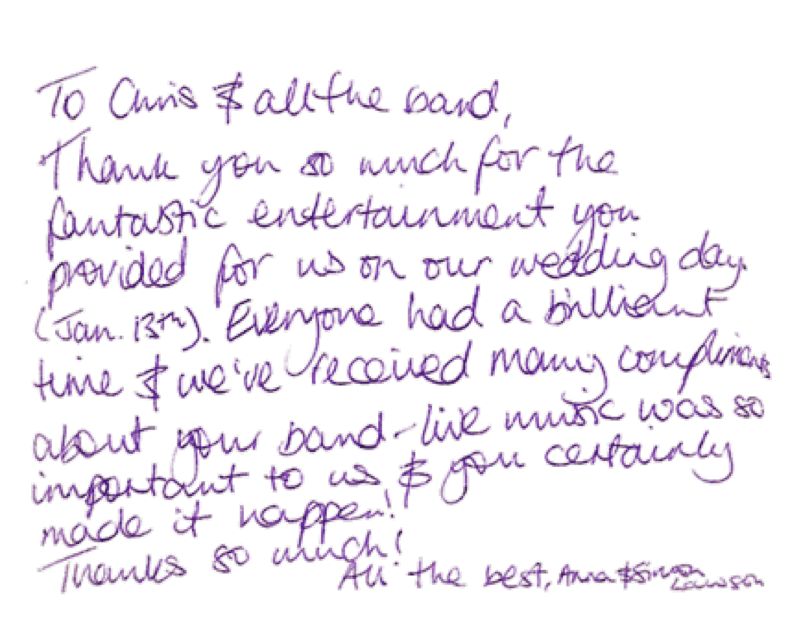 To Chris & all the band,
Thank you so much for the
fantastic entertainment you
provided for us on our wedding day.
(Jan. 13th). Everyone had a brilliant
time & we've received many compliments
about your band - live music was so
important to us & you certainly
made it happen!
Thanks so much!
All the best, Anna & Simon
Lawson